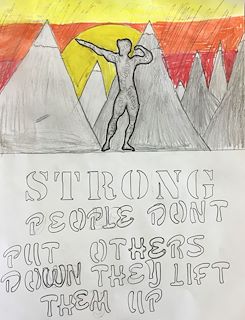 STRONG
PEOPLE DONT
PUT OTHERS
DOWN THEY LIFT
THEM UP